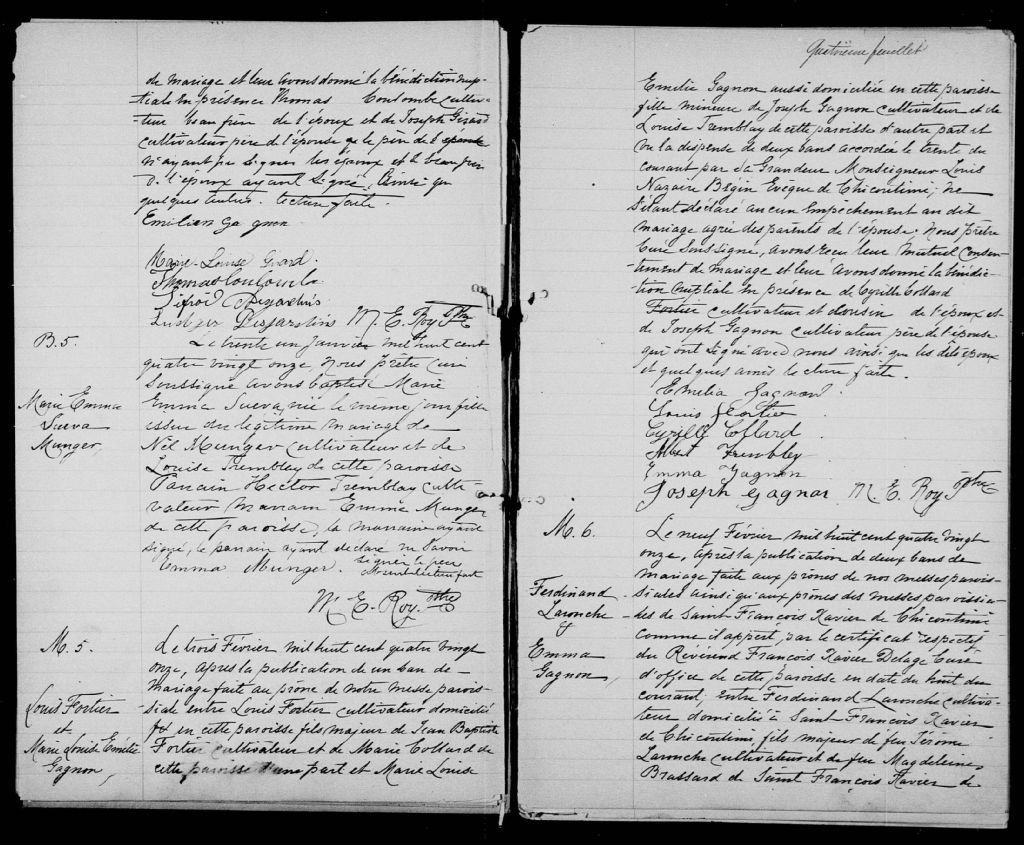 de mariage et leur avons donné la bénédiction nup-
tiale en présence Thomas Coulombe cultiva-
teur beau frère de l'époux et de Joseph Girard
cultivateur père de l'épouse que le père de l'épouse
n'ayant pu signer les époux et le beau frère
de l'époux ayant signé, Ainsi que
quelques autres. lecture faite.
Emilien Gagnon
Marie-Louise Girard.
Thomas Coulombe
Desjardins
Ludger Desjardins M. E. Roy Ptre
B. 5.
Marie Emma
Sueva
Munger,
Le trente un janvier mil huit cent
quatre vingt onze nous prêtre curé
soussigné avons baptisé Marie
Emma Sueva, née le même jour fille
issue du légitime mariage de
Nél Munger cultivateur et de
Louise Tremblay de cette paroisse
Parrain Hector Tremblay culti-
vateur Marraine Emma Munger
de cette paroisse, la marraine ayant
signé, le parrain ayant déclaré ne savoir
Emma Munger. signer le père
lecture faite
M. E. Roy. Ptre
M. 5.
Louis Fortier
et
Marie Louise Emélie
Gagnon,
Le trois Février mil huit cent quatre vingt
onze, après la publication de un ban de
mariage faite au prône de notre messe parois-
siale entre Louis Fortier cultivateur domicilié
en cette paroisse fils majeur de Jean Baptiste
Fortier cultivateur et de Marie Collard de
cette paroisse d'une part et Marie Louise
Quatrième feuillet
Emélie Gagnon aussi domiciliée en cette paroisse
fille mineure de Joseph Gagnon cultivateur et de
Louise Tremblay de cette paroisse d'autre part et
vu la dispense de deux bans accordée le trente du
courant par Sa Grandeur Monseigneur Louis
Nazaire Bégin Evêque de Chicoutimi; ne
s'étant déclaré aucun empêchement au dit
mariage agréé des parents de l'épouse. Nous prêtre
Curé soussigné, avons reçu leur mutuel consen-
-tement de mariage et leur avons donné la bénédic-
-tion nuptiale en présence de Cyrille Collard
Fortier cultivateur et cousin de l'époux et
de Joseph Gagnon cultivateur père de l'épouse
qui ont signé avec nous ainsi que les dits époux
et quelques amis lecture faite.
Emilia Gagnon
Louis Fortier
Cyrille Collard
Albert Trembley
Emma Gagnon
Joseph Gagnon M. E. Roy Ptre
M. 6.
Ferdinand
Larouche
&
Emma
Gagnon,
Le neuf Février mil huit cent quatre vingt
onze, après la publication de deux bans de
mariage faite aux prônes de nos messes parois-
siales ainsi qu'aux prônes des messes paroissia-
-les de Saint François Xavier de Chicoutimi
comme il appert, par le certificat respectif
du Révérend François Xavier Delage Curé
d'office de cette paroisse en date du huit du
courant, entre Ferdinand Larouche cultiva-
teur domicilié à Saint François Xavier
de Chicoutimi fils majeur de feu Jérôme
Larouche cultivateur et de feu Magdeleine
Brassard de Saint François Xavier de